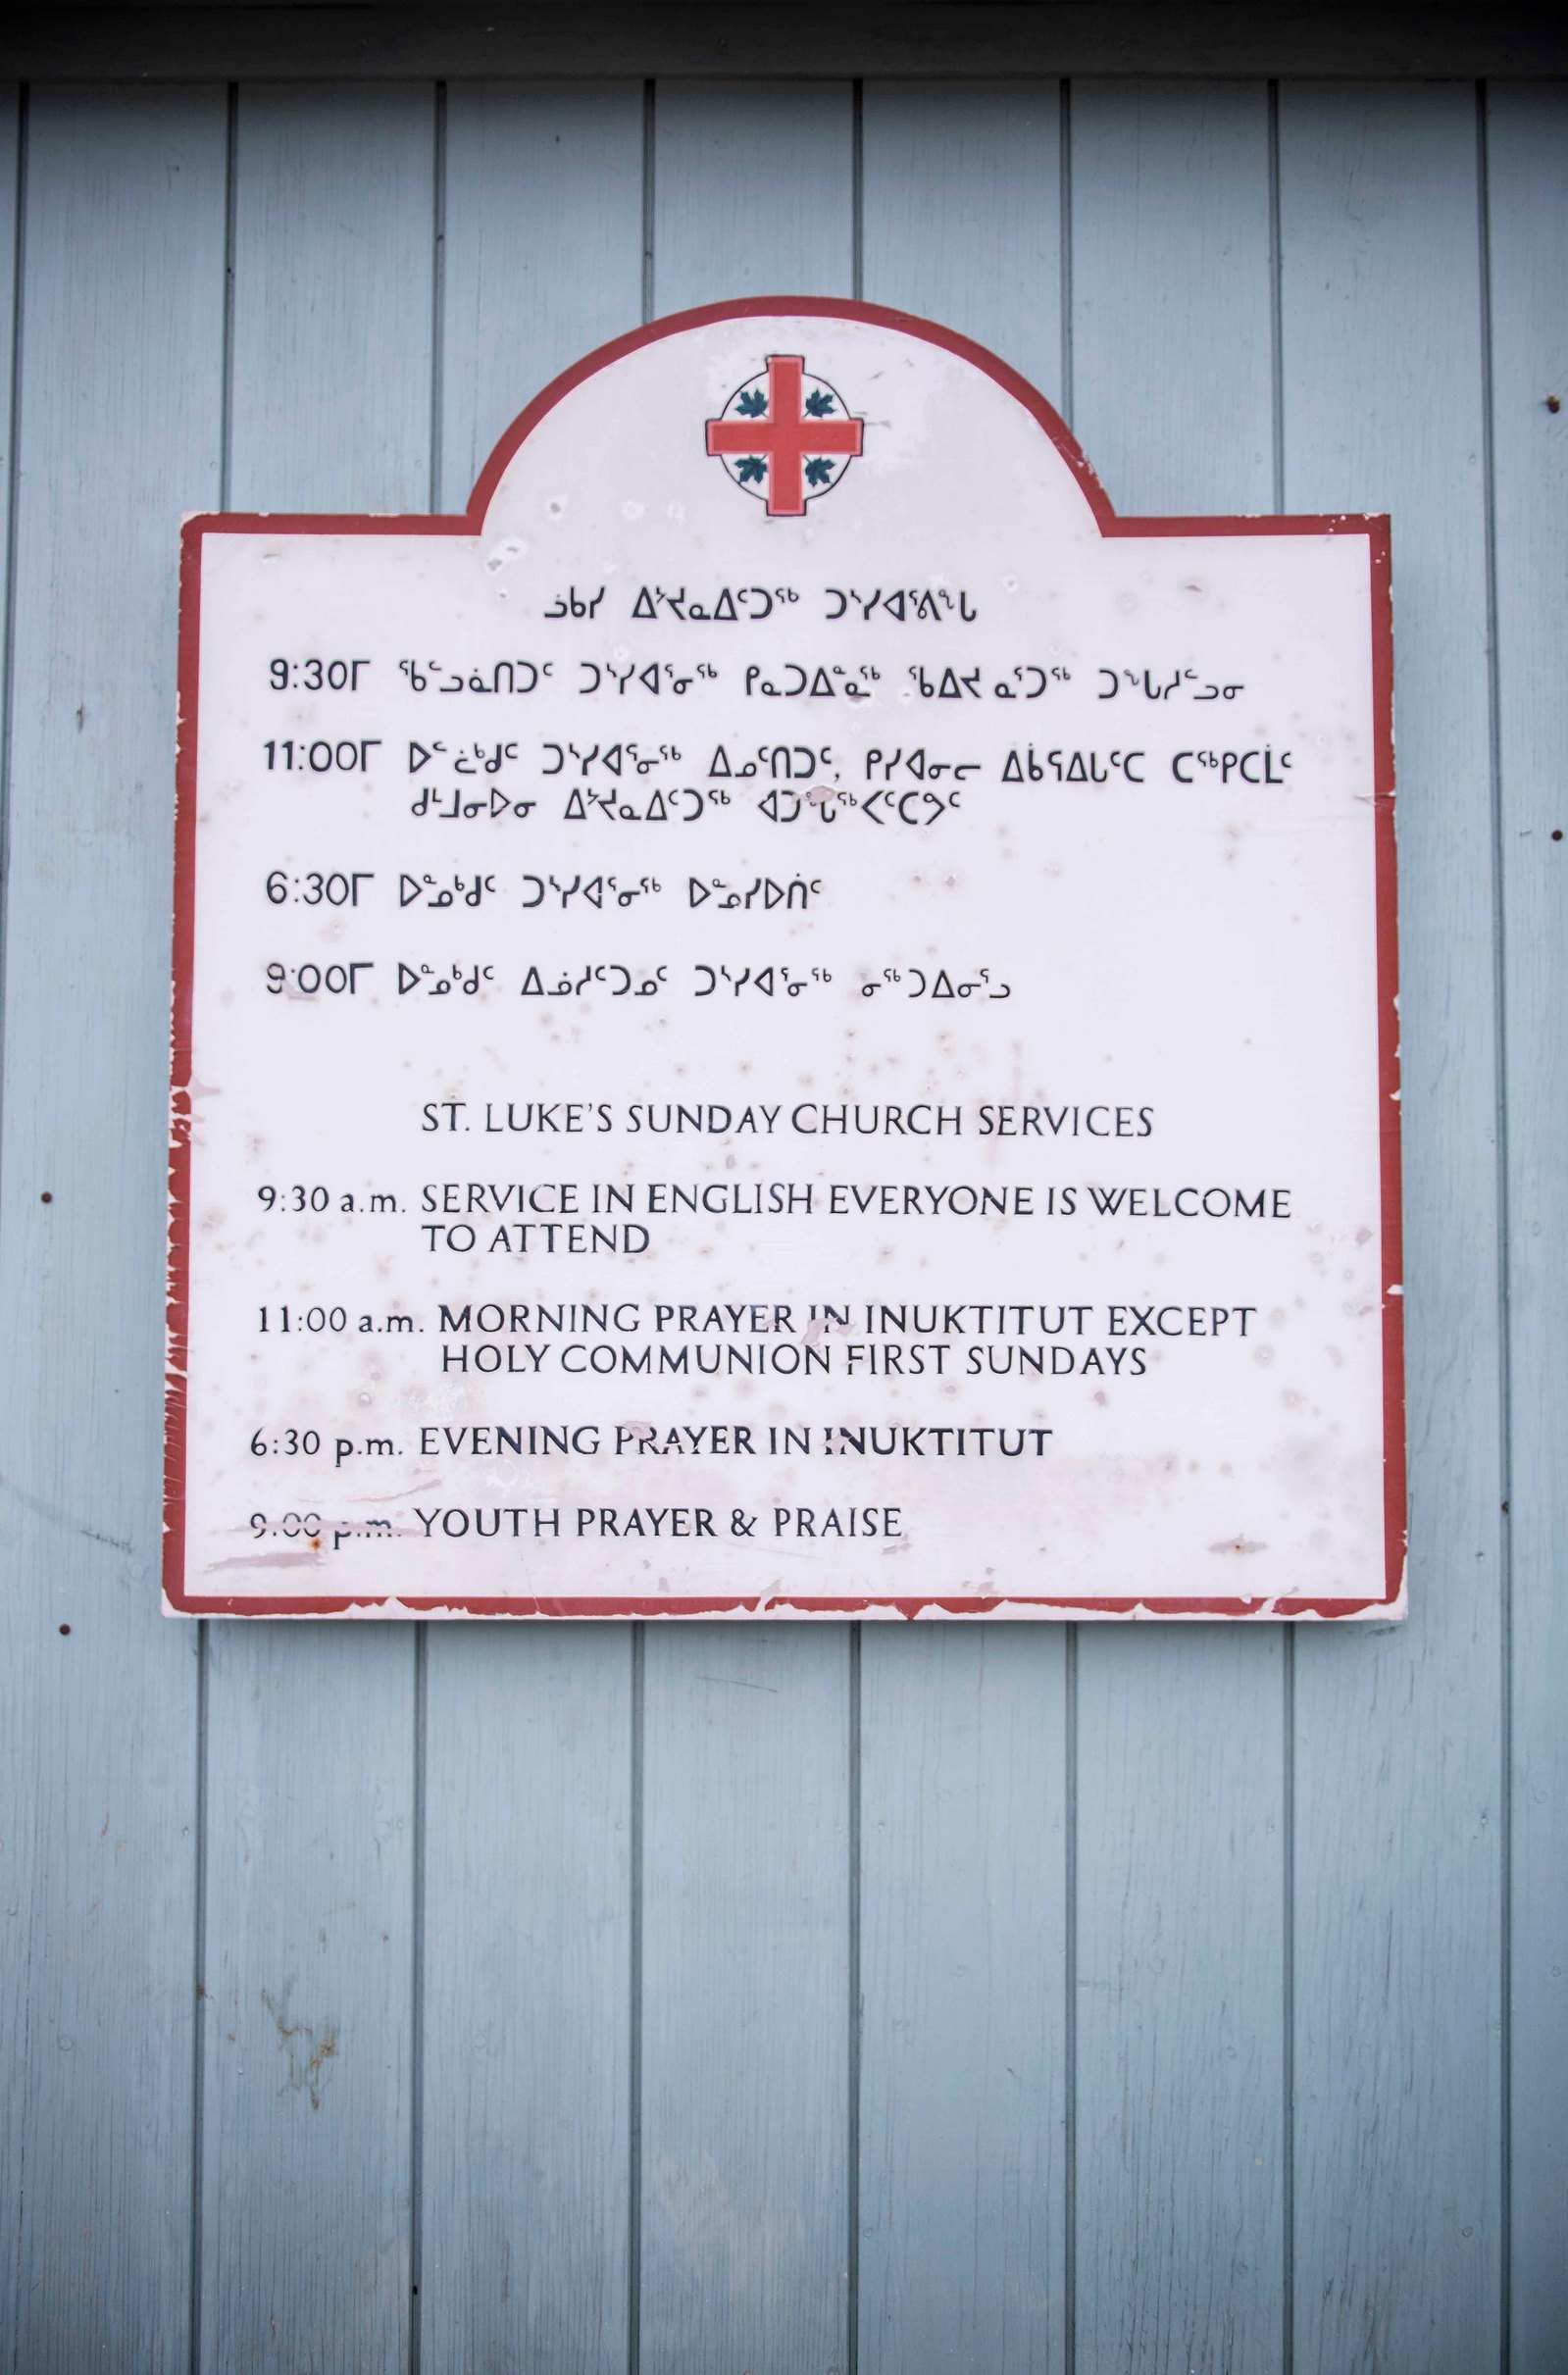 ᓘᑲᓯ ᐃᔾᔪᓇᐃᑦᑐᖅ ᑐᒃᓯᐊᕐᕕᖓ
9:30ᒥ ᖃᓪᓗᓈᑎᑐᑦ ᑐᒃᓯᐊᕐᓂᖅ ᑭᓇᑐᐃᓐᓇᖅ ᖃᐃᔪᓐᓇᕐᑐᖅ ᑐᙵᓱᓪᓗᓂ
11:00ᒥ ᐅᓪᓛᒃᑯᑦ ᑐᒃᓯᐊᕐᓂᖅ ᐃᓄᑦᑎᑐᑦ, ᑭᓯᐊᓂᓕ ᐃᑳᕋᐃᒐᑦᑕ ᑕᖅᑭᑕᒫᑦ
ᑯᒻᒧᓂᐅᓂ ᐃᔾᔪᓇᐃᑦᑐᖅ ᐊᑐᖓᖅᐸᑦᑕᕗᑦ
6:30ᒥ ᐅᓐᓄᒃᑯᑦ ᑐᒃᓯᐊᕐᓂᖅ ᐅᓐᓄᓯᐅᑏᑦ
9:00ᒥ ᐅᓐᓄᒃᑯᑦ ᐃᓅᓱᑦᑐᓄᑦ ᑐᒃᓯᐊᕐᓂᖅ ᓂᖅᑐᐃᓂᕐᓗ
ST. LUKE'S SUNDAY CHURCH SERVICES
9:30 a.m. SERVICE IN ENGLISH EVERYONE IS WELCOME
TO ATTEND
11:00 a.m. MORNING PRAYER IN INUKTITUT EXCEPT
HOLY COMMUNION FIRST SUNDAYS
6:30 p.m. EVENING PRAYER IN INUKTITUT
9:00 p.m. YOUTH PRAYER & PRAISE